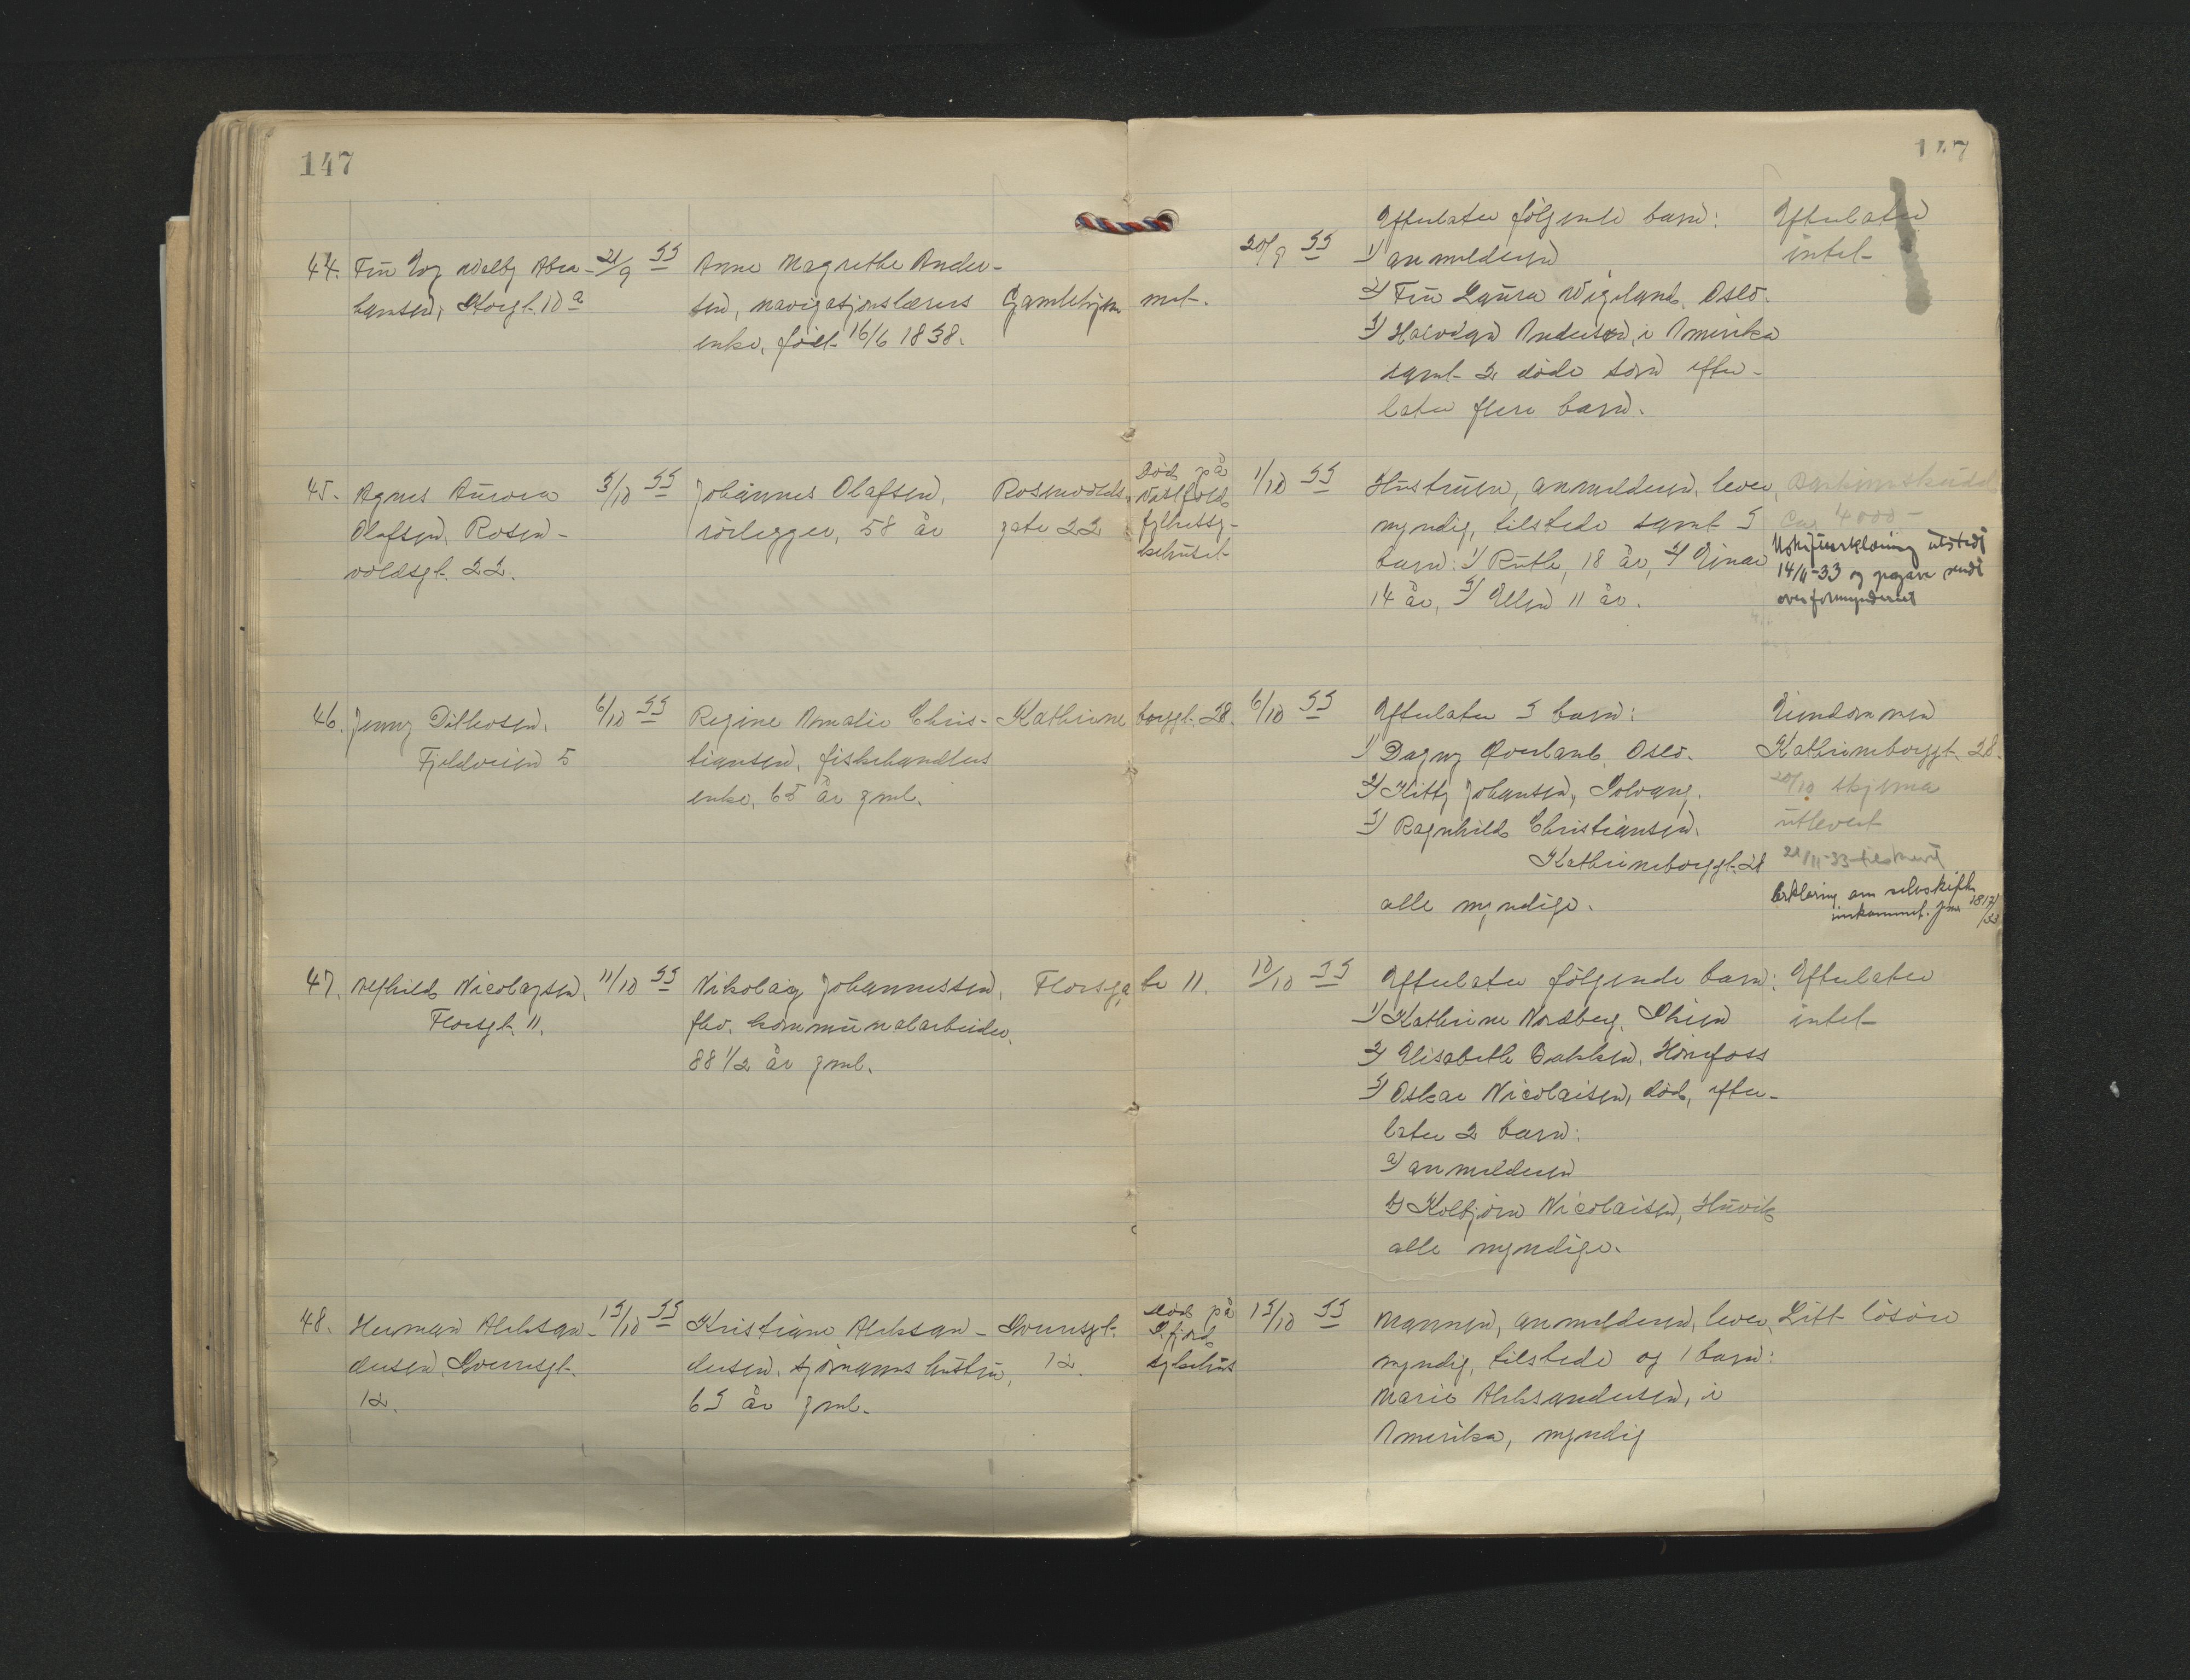 147
147
44. Frú Ingwelby Abra-
hamsen, Storgt. 10a
21/9 33
Anne Magrethe Ander-
sen, navigasjonslærers
enke, født 16/6 1838.
Gamlehjemmet.
20/9 33
Efterlater følgende barn:
1) anmelderen
2) Frú Laura Wigeland, Oslo.
3) Halvdan Andersen, i Amerika
samt 2 døde som efter-
later flere barn.
Efterlater
intet
45. Agnes Aúrora
Olafsen, Rosen-
voldsgt. 22.
3/10 33
Johannes Olafsen,
rørlegger, 58 år
Rosenvolds-
gate 22
Død på
Vestfold
fylkessy-
kehúset
1/10 33
Hústrúen, anmelderen, lever,
myndig, tilstede samt 3
barn: 1) Rúth, 18 år, 2) Einar
14 år, 3) Ellen 11 år.
Ca. 4000-
Uskifteerklæring utstedt
14/11-33 og gjenpart sendt
overformynderiet
46. Jenny Dithosen,
Fjeldveien 5
6/10 33
Regine Amalie Chris-
tiansen, fiskehandlers
enke, 65 år gml.
Kathrineborggt. 28.
6/10 33
Efterlater 3 barn:
1) Dagny Øverland, Oslo.
2) Kitty Johansen, Solvang.
3) Ragnhild Christiansen,
Kathrineborggt. 28
alle myndige.
Eiendommen
Kathrineborggt. 28.
20/10 skjema
útlevert
22/11-33 tilskrevet
Erklæring om selvskifte
innkommet. Jnr 1817/33
47. Alfhild Nicolaysen,
Florsgt. 11.
11/10 33
Nikolay Johannessen,
fhv. kommúnalarbeider,
88 1/2 år gml.
Florsgate 11.
10/10 33
Efterlater følgende barn:
1) Kathrine Nordberg, Skien
2) Elisabeth Bakken, Hønefoss
3) Oskar Nicolaisen, død, efter-
later 2 barn:
a) anmelderen
b) Kolbjørn Nicolaisen, Húvik
alle myndige.
Efterlater
intet
48. Herman Aleksan-
dersen, Sverresgt.
12.
13/10 33
Kristiane Aleksan-
dersen, sjømanns hústrú,
63 år gml.
Sverresgt.
12.
Død på
S.fjord
sykehús
13/10 33
Mannen, anmelderen, lever,
myndig, tilstede og 1 barn:
Marie Aleksandersen, i
Amerika, myndig
Litt løsøre